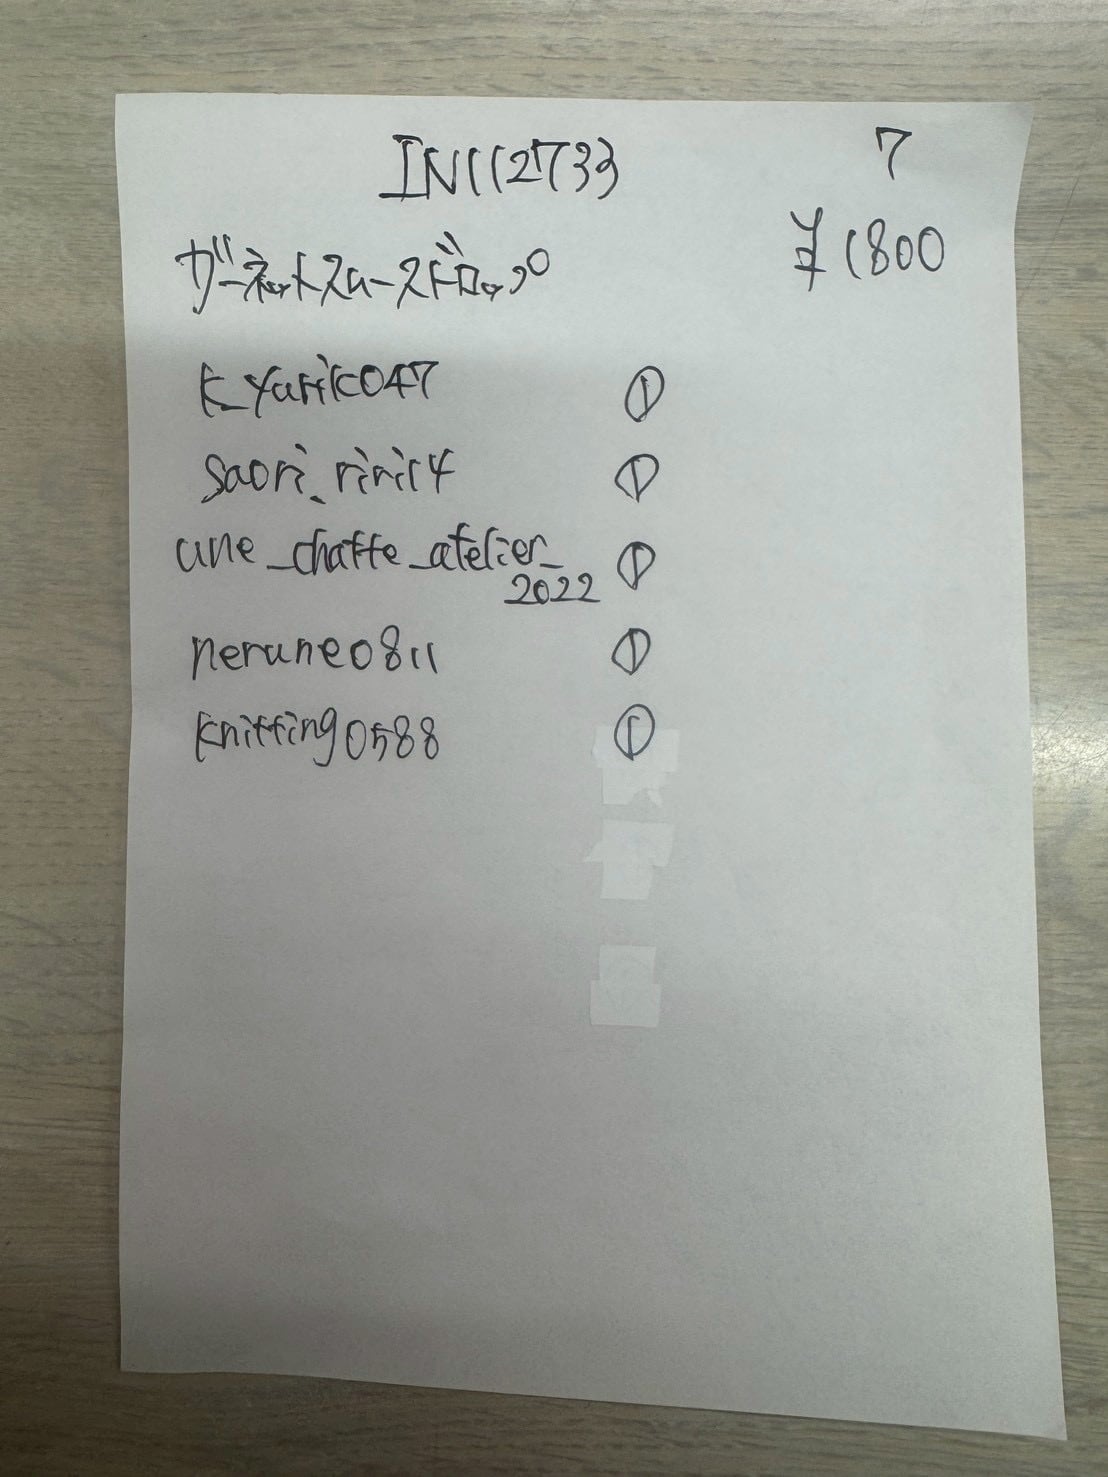 IN112733 7
ガーネットスムースドロップ ¥1800
k_yuriko47 ①
saori_riri14 ①
une_chatte_atelier_2022 ①
nerune0811 ①
knitting0588 ①